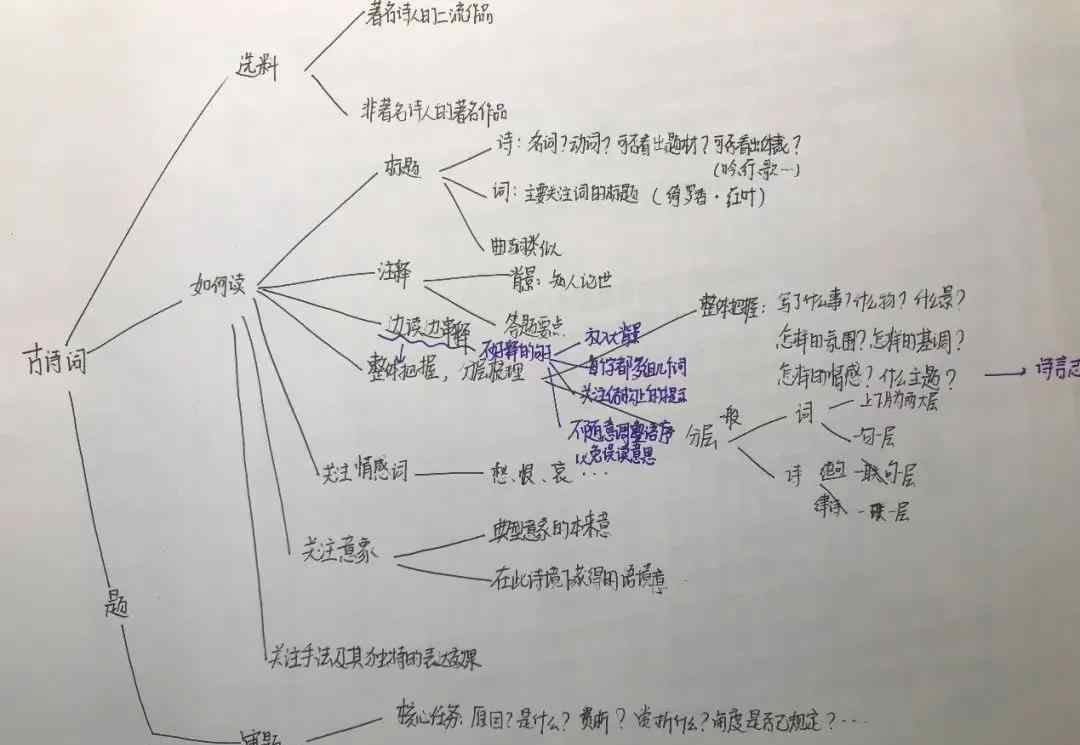 著名诗人的二流作品
选料
非著名诗人的著名作品
标题
诗：名词？动词？可否看出题材？可否看出体裁？
（吟、行、歌…）
词：主要关注词的标题（绮罗香·红叶）
曲与词类似
如何读
注释
背景：知人论世
答题要点
边读边串释
不好释的句子
放入大背景
每字都多组几个词
关注结构上的提示
不随意调整语序
以免误读意思
整体把握，分层梳理
整体把握：写了什么事？什么物？什么景？
怎样的氛围？怎样的基调？
怎样的情感？什么主题？
诗言志
分层
一般
词
上下片为两大层
一句一层
诗
绝句 一句一层
律诗 一联一层
古诗词
关注情感词
愁、恨、哀…
关注意象
典型意象的本来意
在此诗境下获得的语境意
题
关注手法及其独特的表达效果
审题
核心任务：原因？是什么？赏析？赏析什么？角度是否已规定？…